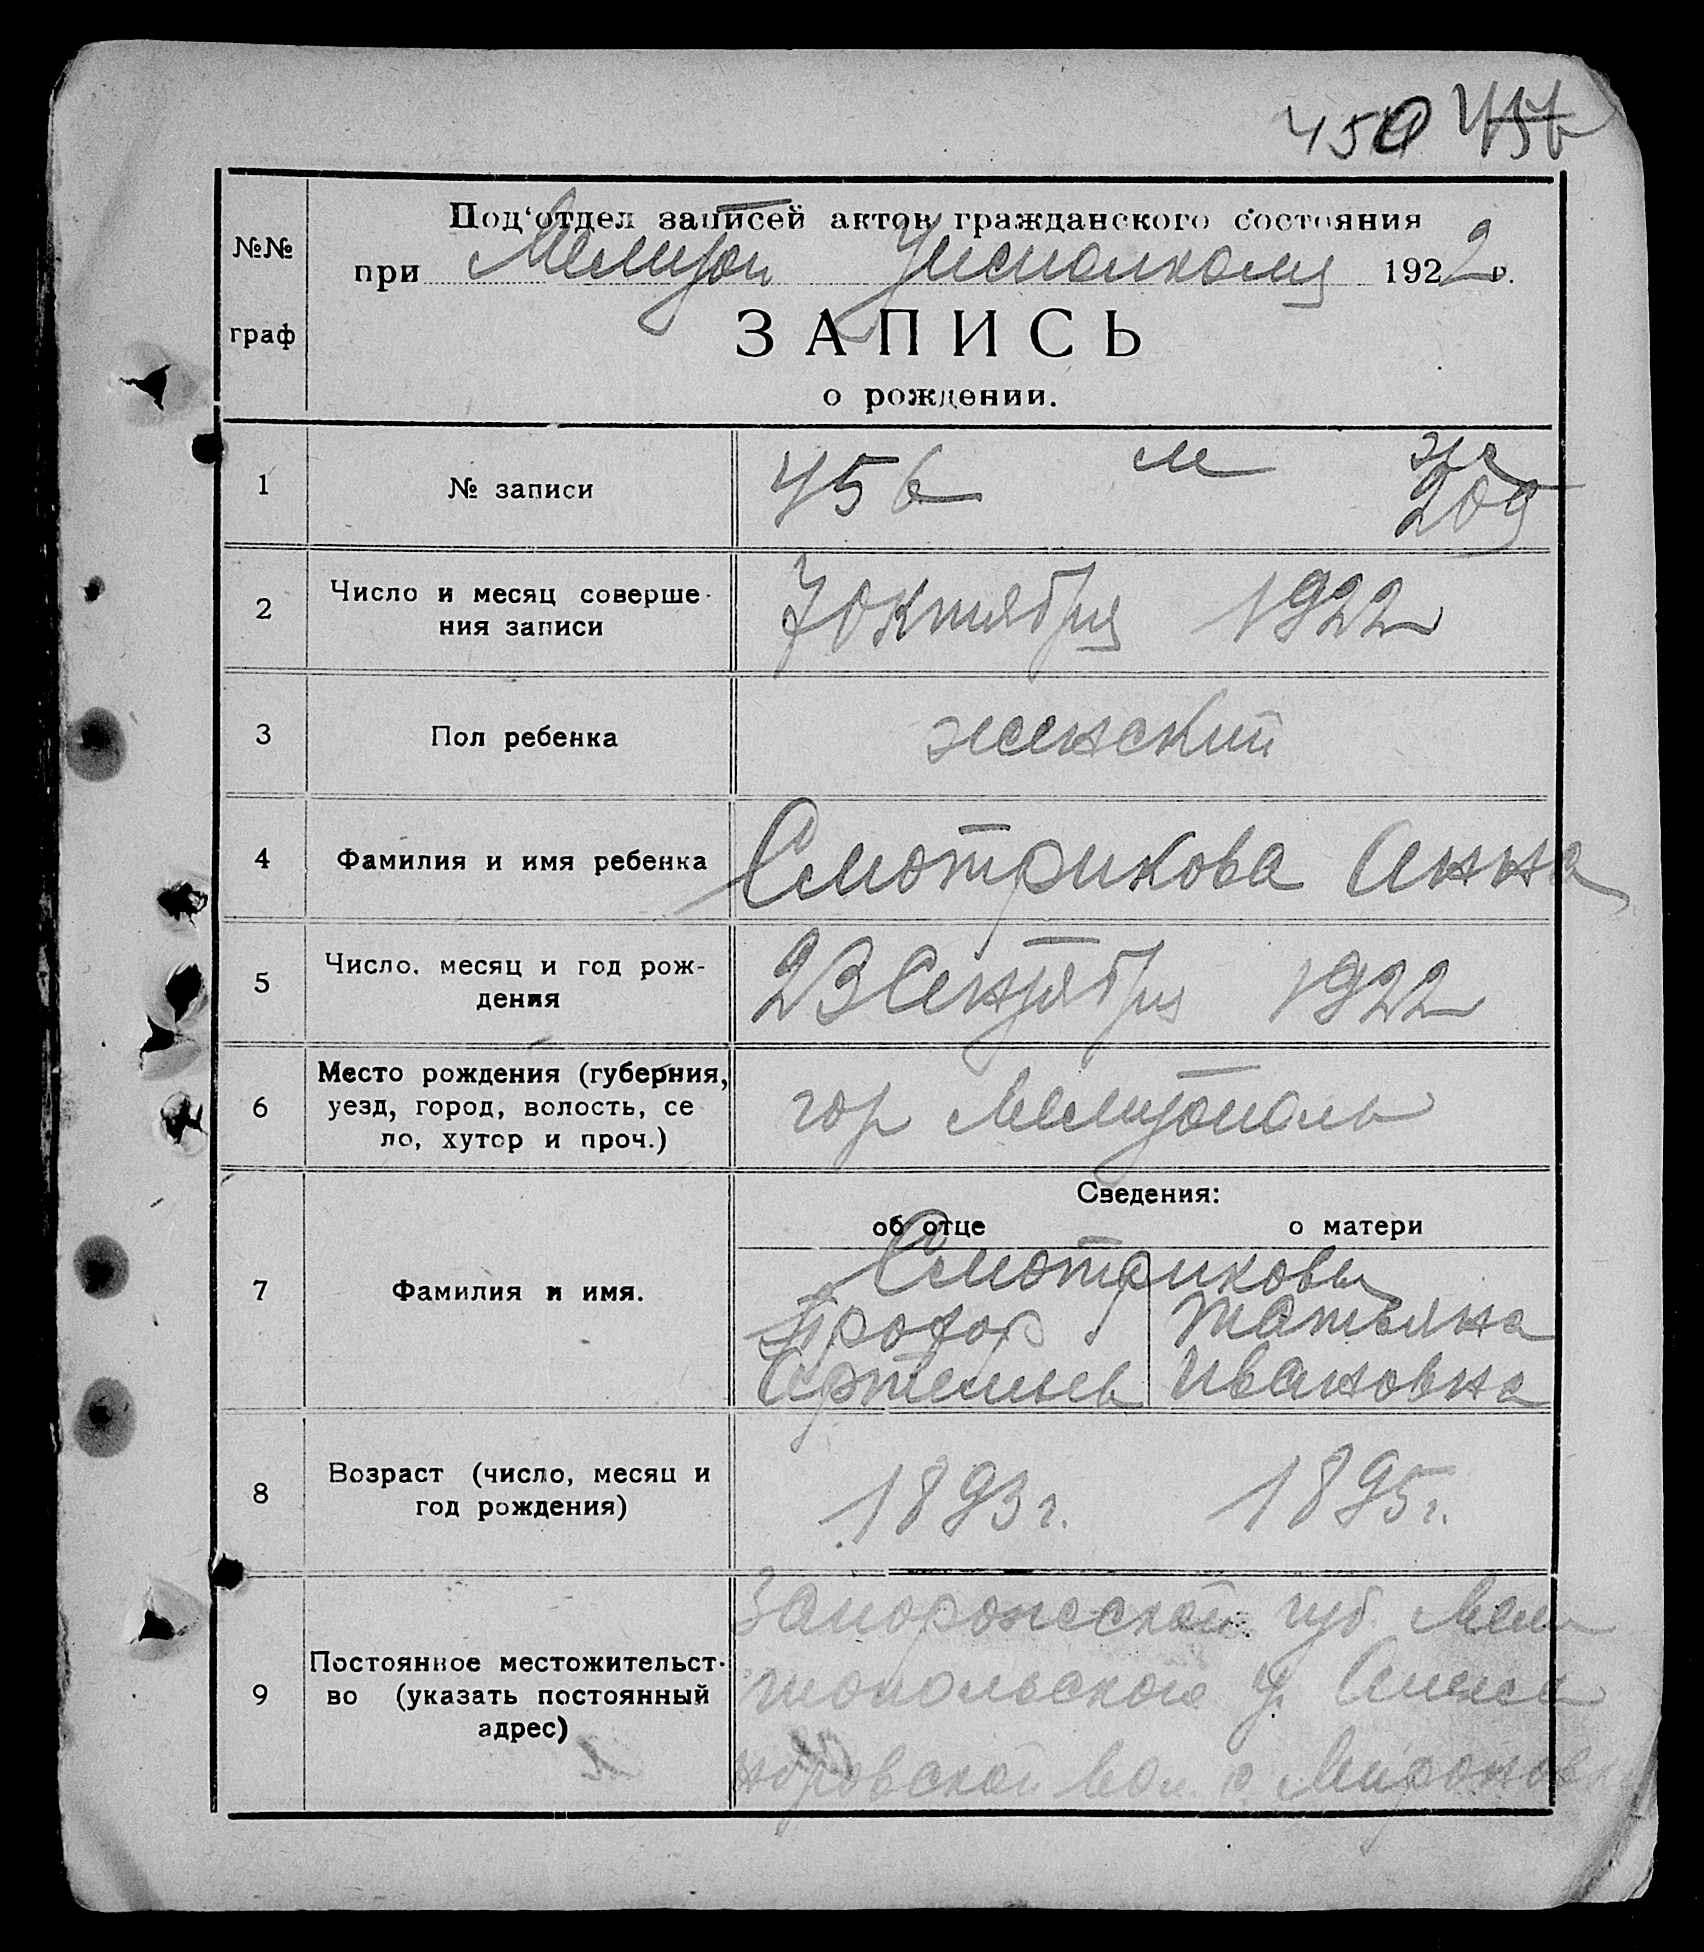 450 456
№№
граф
Под‘отдел записей актов гражданского состояния
при Мелитоп Уисполкома 1922 г.
ЗАПИСЬ
о рождении.
1 № записи 456 м ж
209
2 Число и месяц соверше-
ния записи 7 Октября 1922
3 Пол ребенка женский
4 Фамилия и имя ребенка Смотрикова Анна
5 Число, месяц и год рож-
дения 23 Сентября 1922
6 Место рождения (губерния,
уезд, город, волость, се
ло, хутор и проч.) гор Мелитополь
Сведения:
об отце о матери
7 Фамилия и имя. Смотриковы
Прохор Татьяна
Артемьев Ивановна
8 Возраст (число, месяц и
год рождения) 1893 г. 1895 г.
9 Постоянное местожительст-
во (указать постоянный
адрес)
Запорожской губ. Мели
топольского у. Алекса
ндровской вол. с. Мироновка